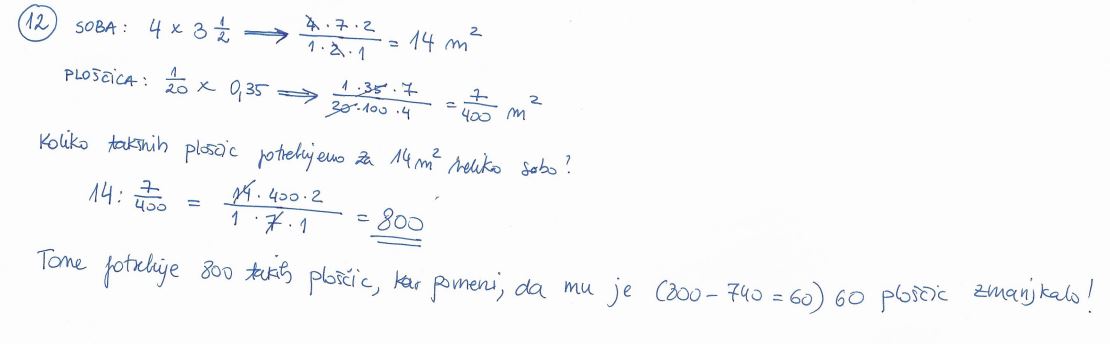 12 SOBA: 4 x 3 1/2 ⟹ 4 · 7 · 2 / 1 · 2 · 1 = 14 m²
PLOŠČICA: 1/20 x 0,35 ⟹ 1 · 35 · 7 / 20 · 100 · 4 = 7/400 m²
Koliko takšnih ploščic potrebujemo za 14 m² veliko sobo?
14 : 7/400 = 14 · 400 · 2 / 1 · 7 · 1 = 800
Tone potrebuje 800 takih ploščic, kar pomeni, da mu je (800 - 740 = 60) 60 ploščic zmanjkalo!